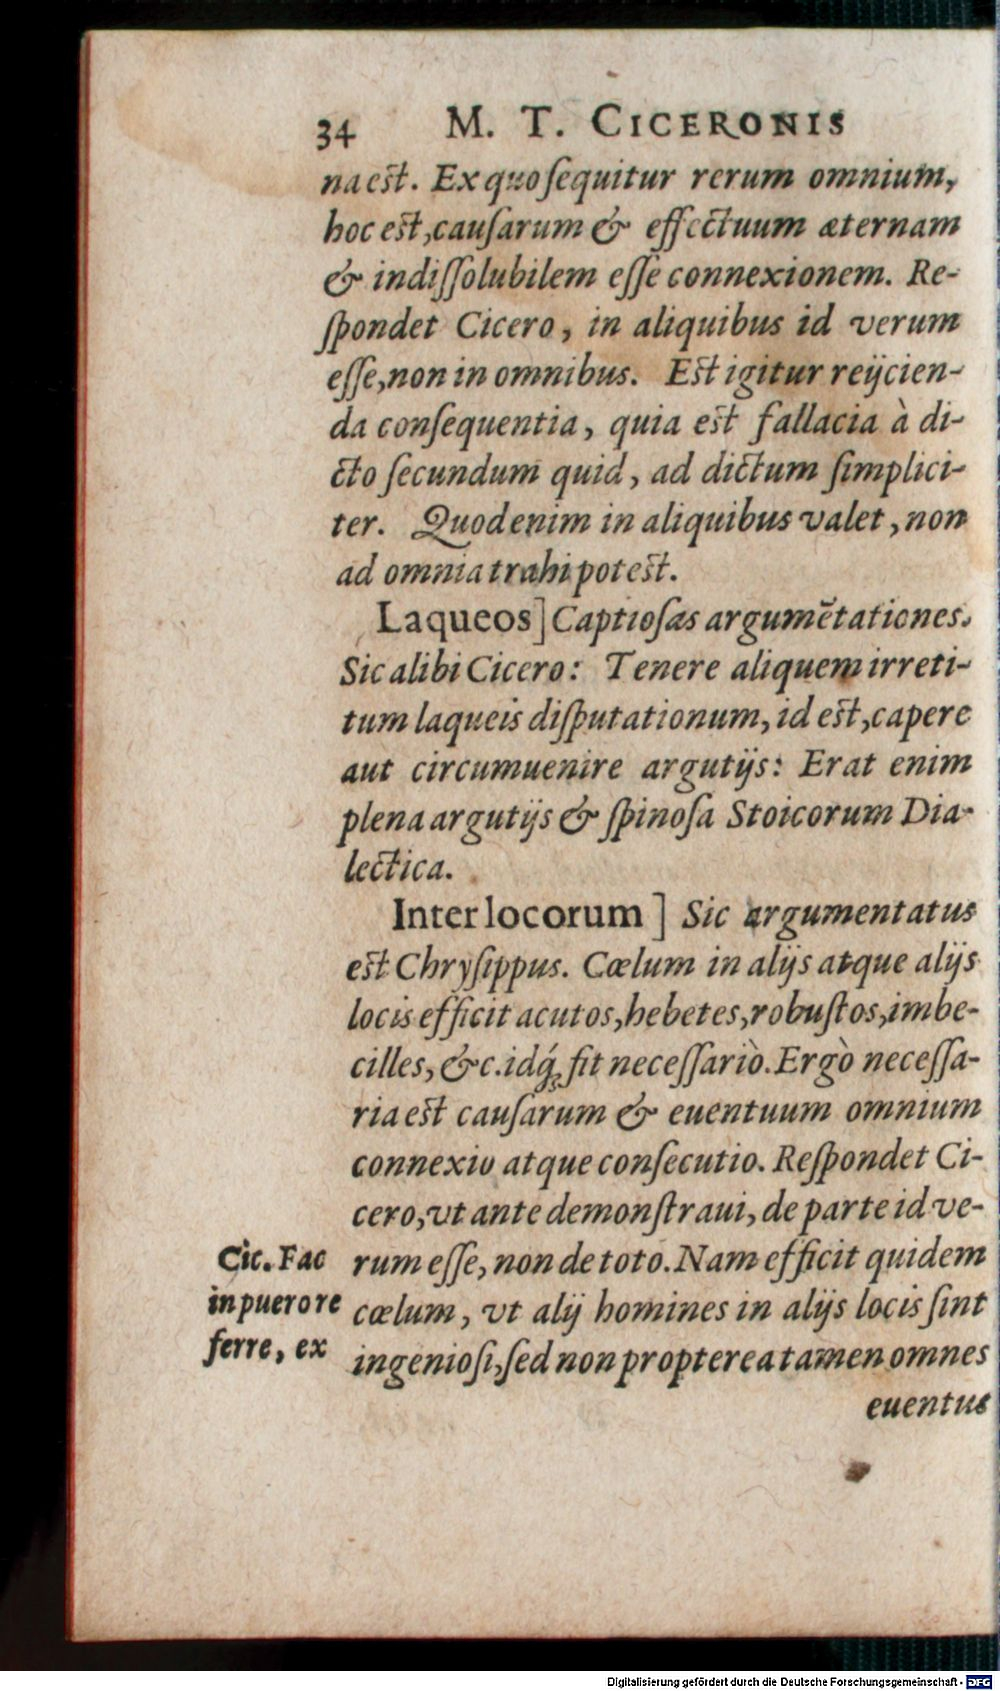 34 M. T. CICERONIS
na est. Ex quo ſequitur rerum omnium,
hoc est, cauſarum & effectuum æternam
& indiſſolubilem eſſe connexionem. Re-
ſpondet Cicero, in aliquibus id verum
eſſe, non in omnibus. Est igitur reijcien-
da conſequentia, quia est fallacia à di-
cto ſecundum quid, ad dictum ſimplici-
ter. Quod enim in aliquibus valet, non
ad omnia trahi potest.
Laqueos] Captioſas argumētationes.
Sic alibi Cicero: Tenere aliquem irreti-
tum laqueis diſputationum, id est, capere
aut circumuenire argutijs: Erat enim
plena argutijs & ſpinoſa Stoicorum Dia-
lectica.
Inter locorum] Sic argumentatus
est Chryſippus. Cœlum in alijs atque alijs
locis efficit acutos, hebetes, robuſtos, imbe-
cilles, &c. idq́; fit neceſſariò. Ergò neceſſa-
ria est cauſarum & euentuum omnium
connexio atque conſecutio. Reſpondet Ci-
cero, vt ante demonſtraui, de parte id ve-
rum eſſe, non de toto. Nam efficit quidem
cœlum, vt alij homines in alijs locis ſint
ingenioſi, ſed non propterea tamen omnes
euentus
Cic. Fac
in puero re
ferre, ex
Digitalisierung gefördert durch die Deutsche Forschungsgemeinschaft - DFG